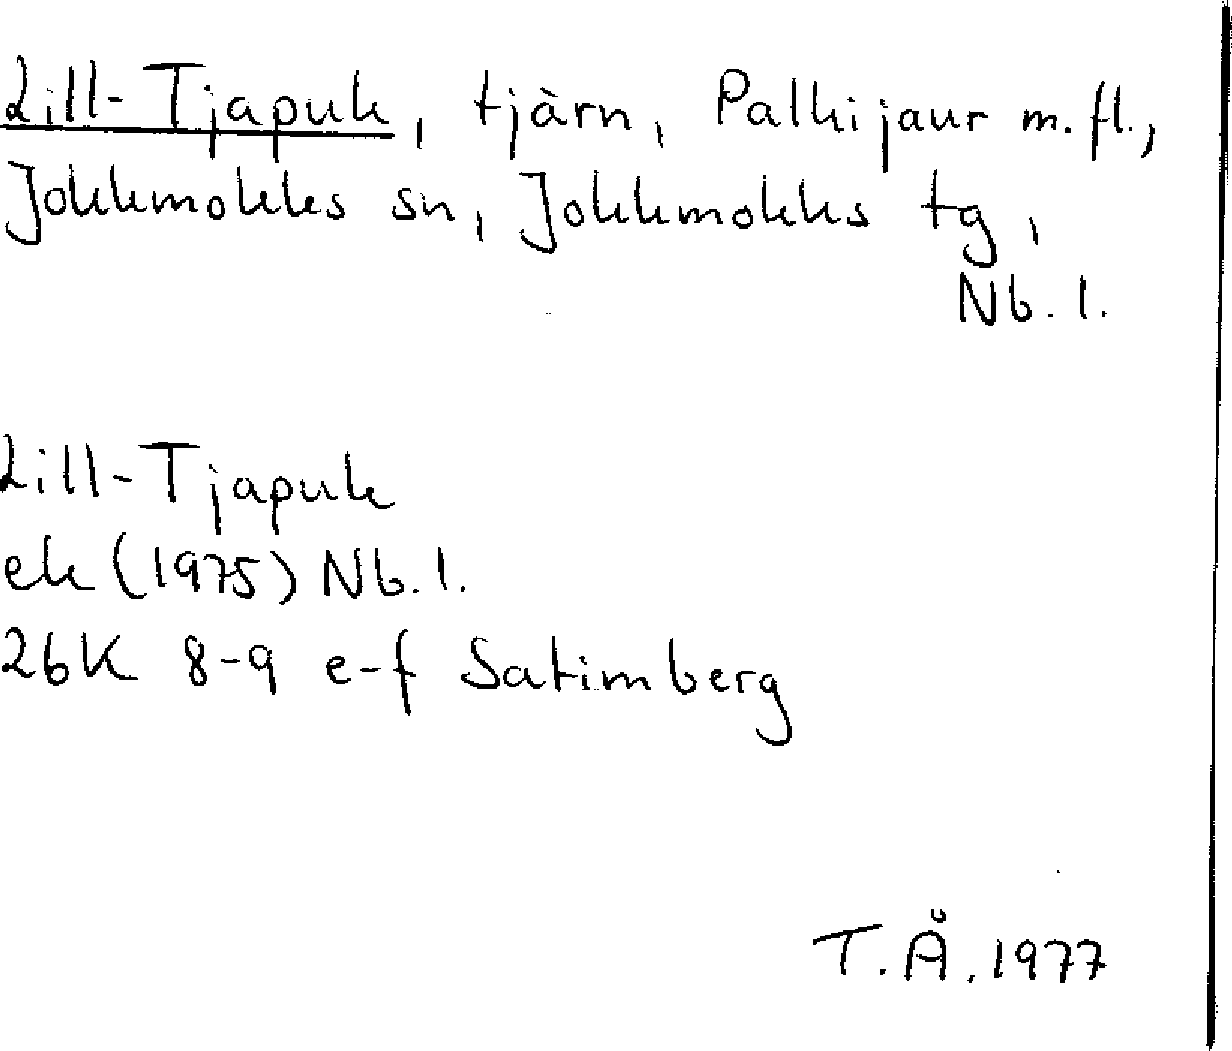 Lill-Tjapuk, tjärn, Palkijaur m.fl.,
Jokkmokks sn, Jokkmokks tg,
Nb. l.
Lill-Tjapuk
ek (1975) Nb. l.
26K 8-9 e-f Satimberg
T.Å. 1977